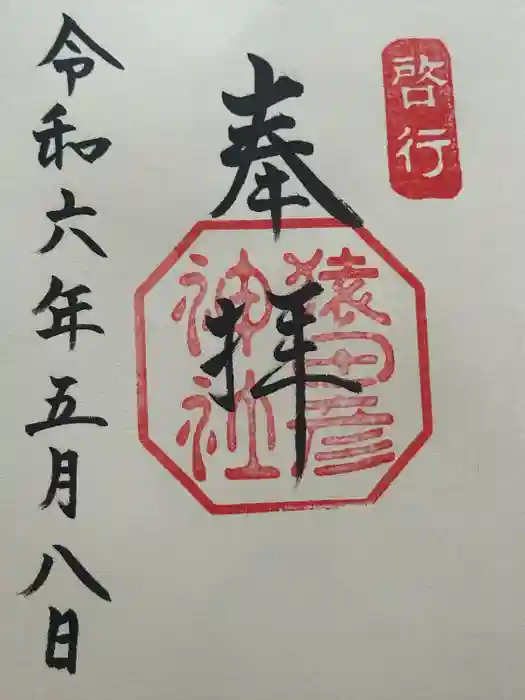 啓行
奉拝
猿田彦
神社
令和六年五月八日